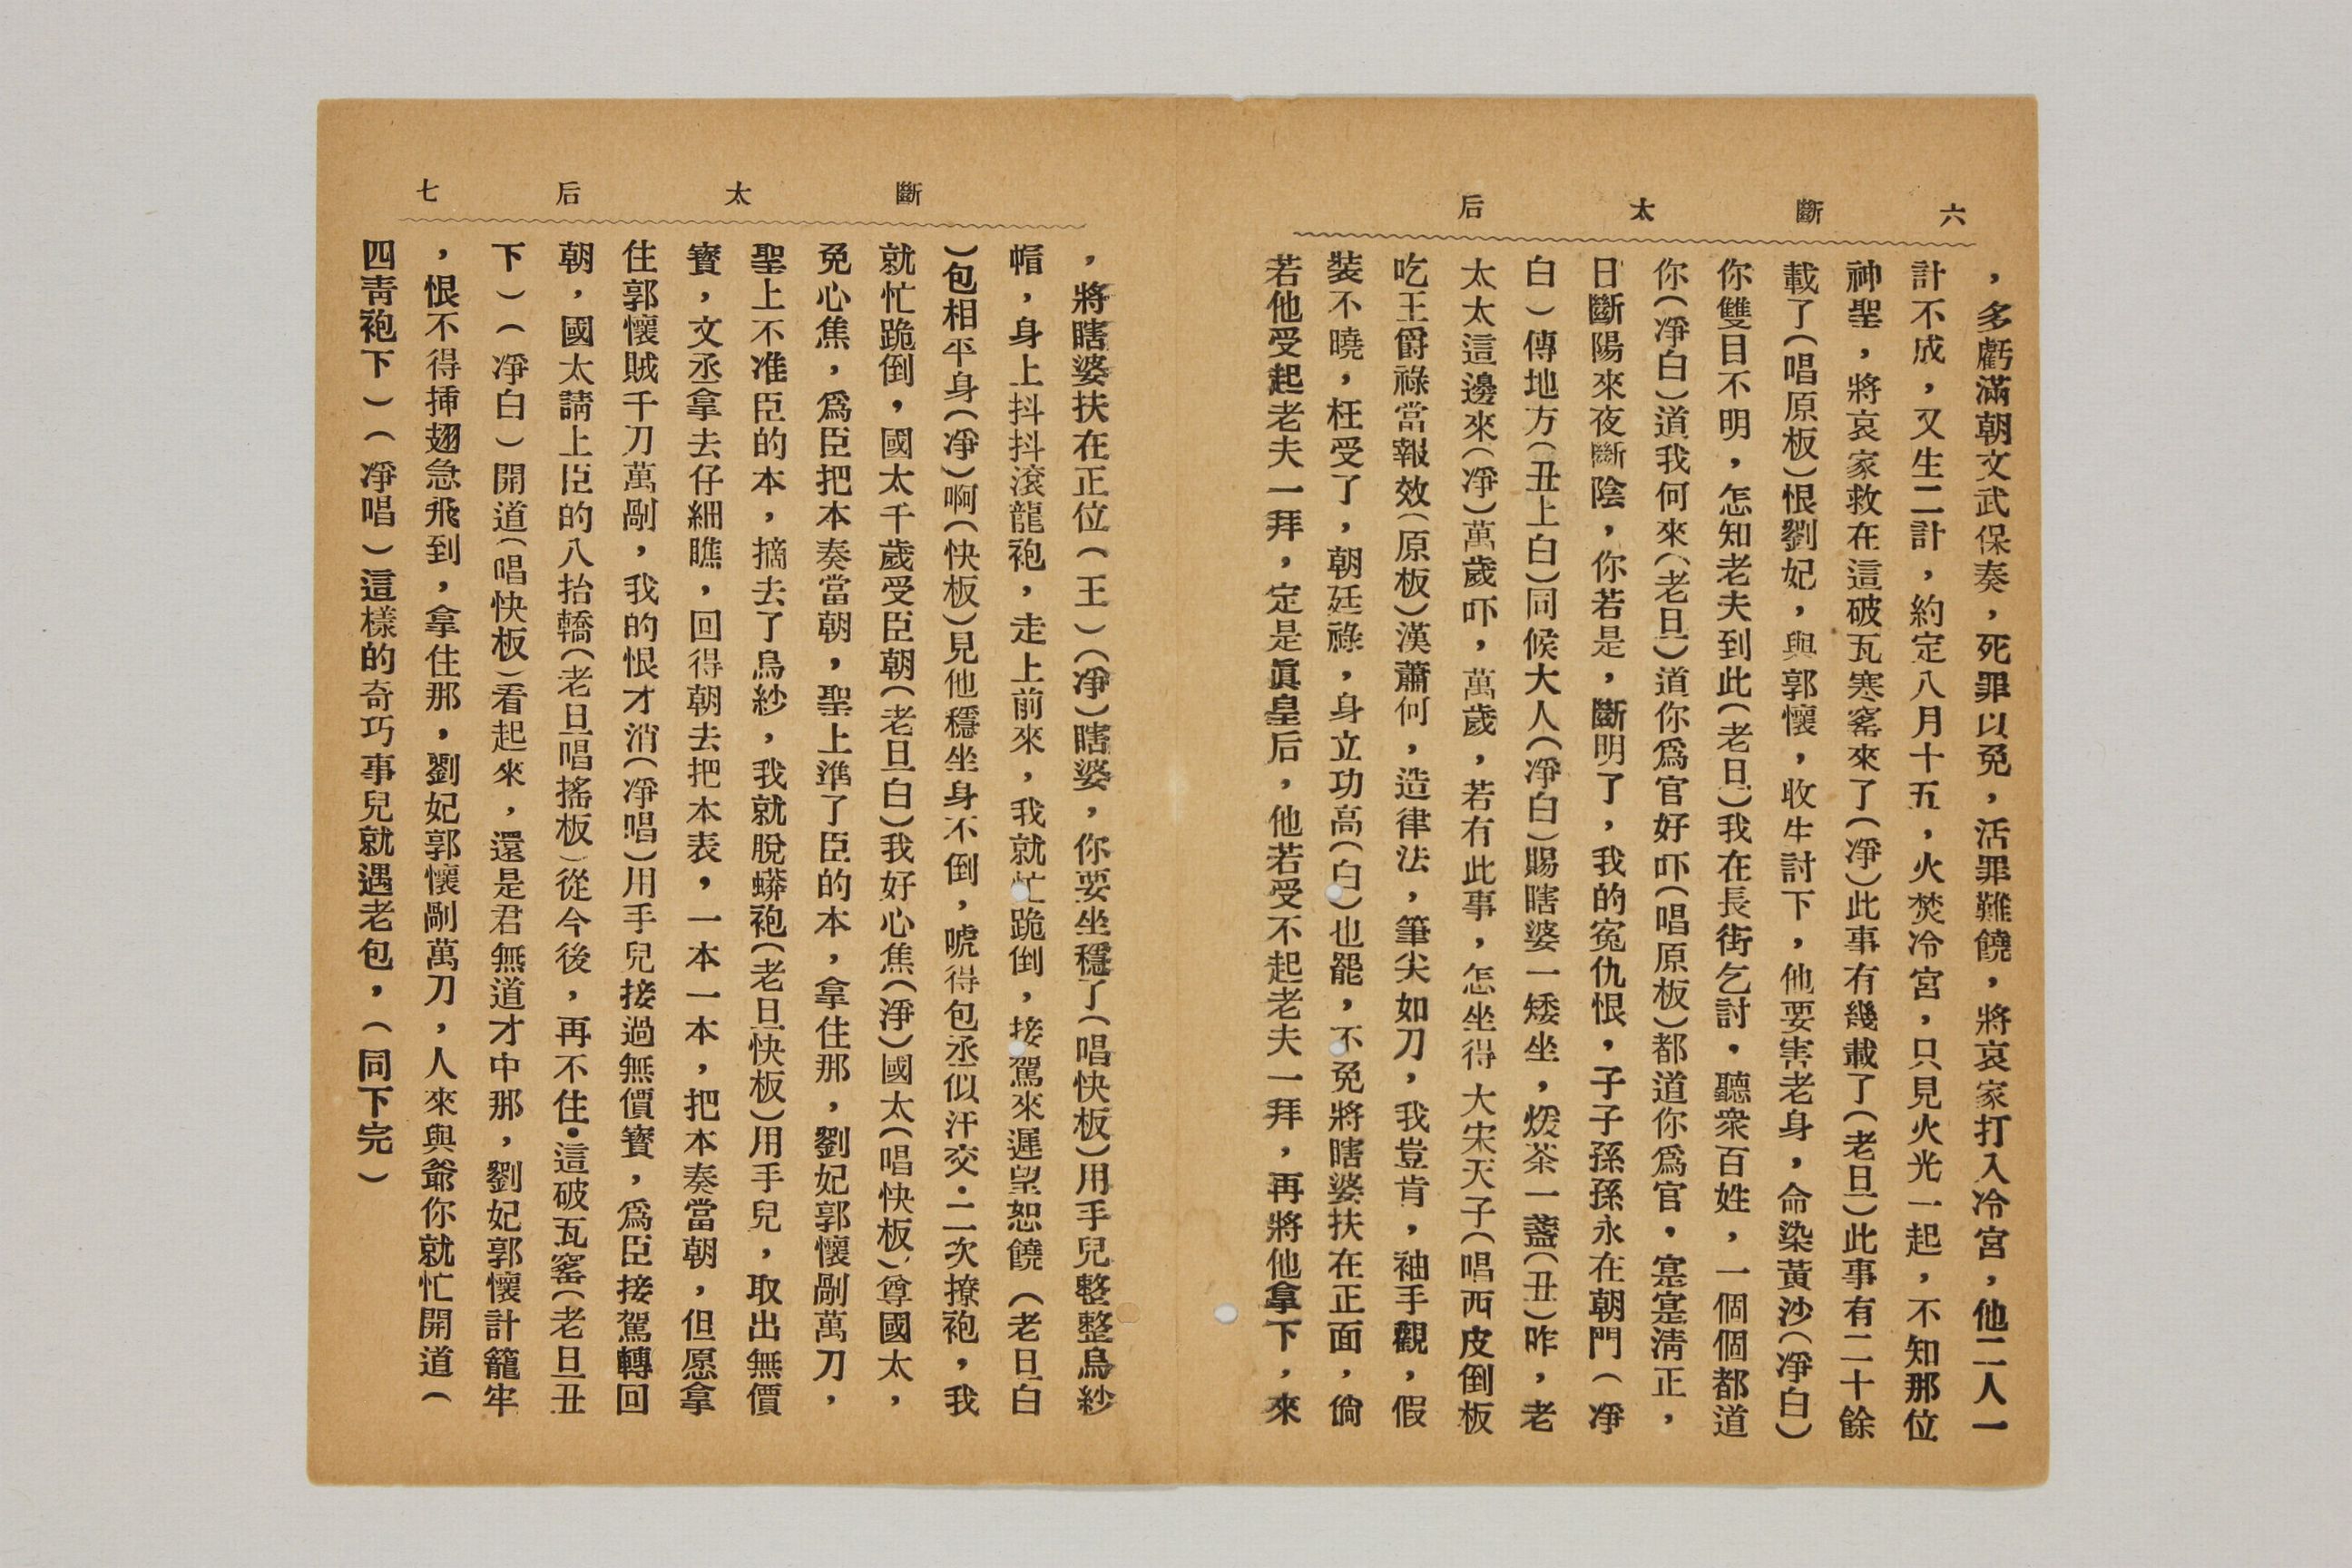 六 斷太后
，多虧滿朝文武保奏，死罪以免，活罪難饒，將哀家打入冷宮，他二人一
計不成，又生二計，約定八月十五，火焚冷宮，只見火光一起，不知那位
神聖，將哀家救在這破瓦寒窰來了（凈）此事有幾載了（老旦）此事有二十餘
載了（唱原板）恨劉妃，與郭懷，收生討下，他要害老身，命染黃沙（凈白）
你雙目不明，怎知老夫到此（老旦）我在長街乞討，聽衆百姓，一個個都道
你（凈白）道我何來（老旦）道你爲官好吓（唱原板）都道你爲官，寔寔淸正，
日斷陽來夜斷陰，你若是，斷明了，我的寃仇恨，子子孫孫永在朝門（凈
白）傳地方（丑上白）同候大人（凈白）賜瞎婆一矮坐，煖茶一盞（丑）咋，老
太太這邊來（凈）萬歲吓，萬歲，若有此事，怎坐得大宋天子（唱西皮倒板
吃王爵祿當報效（原板）漢蕭何，造律法，筆尖如刀，我豈肯，袖手觀，假
裝不曉，枉受了，朝廷祿，身立功高（白）也罷，不免將瞎婆扶在正面，倘
若他受起老夫一拜，定是眞皇后，他若受不起老夫一拜，再將他拿下，來
斷太后 七
，將瞎婆扶在正位（王）（凈）瞎婆，你要坐穩了（唱快板）用手兒整整烏紗
帽，身上抖抖滾龍袍，走上前來，我就忙跪倒，接駕來遲望恕饒（老旦白
）包相平身（凈）啊（快板）見他穩坐身不倒，唬得包丞似汗交．二次撩袍，我
就忙跪倒，國太千歲受臣朝（老旦白）我好心焦（淨）國太（唱快板）尊國太，
免心焦，爲臣把本奏當朝，聖上準了臣的本，拿住那，劉妃郭懷剮萬刀，
聖上不准臣的本，摘去了烏紗，我就脫蟒袍（老旦快板）用手兒，取出無價
寳，文丞拿去仔細瞧，回得朝去把本表，一本一本，把本奏當朝，但愿拿
住郭懷賊千刀萬剮，我的恨才消（凈唱）用手兒接過無價寳，爲臣接駕轉回
朝，國太請上臣的八抬轎（老旦唱搖板）從今後，再不住．這破瓦窰（老旦丑
下）（凈白）開道（唱快板）看起來，還是君無道才中那，劉妃郭懷計籠牢
，恨不得揷翅急飛到，拿住那，劉妃郭懷剮萬刀，人來與爺你就忙開道（
四靑袍下）（凈唱）這樣的奇巧事兒就遇老包，（同下完）